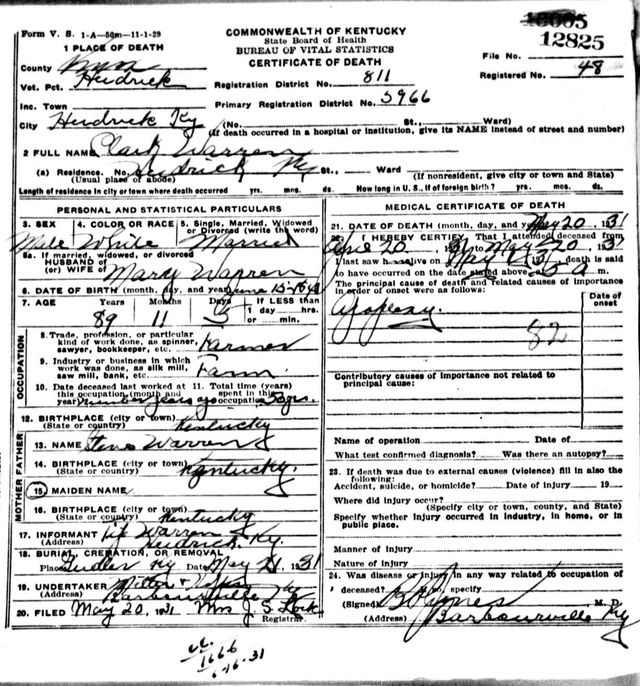 Form V. S. 1-A—50m—11-1-29
COMMONWEALTH OF KENTUCKY
State Board of Health
BUREAU OF VITAL STATISTICS
CERTIFICATE OF DEATH
13005
12825
File No.
Registered No. 48
1 PLACE OF DEATH
County Knox
Vot. Pct. Heidrick
Registration District No. 811
Inc. Town
Primary Registration District No. 5966
City Heidrick Ky (No. St., Ward)
(If death occurred in a hospital or institution, give its NAME instead of street and number)
2 FULL NAME Clark Warren
(a) Residence. No. Heidrick Ky St., Ward
(Usual place of abode) (If nonresident, give city or town and State)
Length of residence in city or town where death occurred yrs. mos. ds. How long in U. S., if of foreign birth? yrs. mos. ds.
PERSONAL AND STATISTICAL PARTICULARS
3. SEX 4. COLOR OR RACE 5. Single, Married, Widowed
or Divorced (write the word)
Male White Married
5a. If married, widowed, or divorced
HUSBAND of
(or) WIFE of Mary Warren
6. DATE OF BIRTH (month, day, and year) June 15-
7. AGE Years Months Days If LESS than
1 day hrs.
or min.
89 11 5
OCCUPATION
8. Trade, profession, or particular
kind of work done, as spinner,
sawyer, bookkeeper, etc. Farmer
9. Industry or business in which
work was done, as silk mill,
saw mill, bank, etc. Farm
10. Date deceased last worked at 11. Total time (years)
this occupation (month and spent in this
year) number years ago occupation 50 yrs.
12. BIRTHPLACE (city or town)
(State or country) Kentucky
FATHER
13. NAME Steve Warren
14. BIRTHPLACE (city or town)
(State or country) Kentucky.
MOTHER
15. MAIDEN NAME
16. BIRTHPLACE (city or town)
(State or country) Kentucky
17. INFORMANT Warren
(Address) Heidrick, Ky.
18. BURIAL, CREMATION, OR REMOVAL
Place Ky Date May 21 1931
19. UNDERTAKER
(Address) Barbourville Ky
20. FILED May 20, 1931 Mrs J. S. Lock
Registrar.
MEDICAL CERTIFICATE OF DEATH
21. DATE OF DEATH (month, day, and year) May 20, 1931
22. I HEREBY CERTIFY, That I attended deceased from
to May 20
I last saw h alive on May death is said
to have occurred on the date stated above, at 5 a m.
The principal cause of death and related causes of importance
in order of onset were as follows:
Date of
onset
Apoplexy.
82
Contributory causes of importance not related to
principal cause:
Name of operation Date of
What test confirmed diagnosis? Was there an autopsy?
23. If death was due to external causes (violence) fill in also the
following:
Accident, suicide, or homicide? Date of injury 19
Where did injury occur?
(Specify city or town, county, and State)
Specify whether injury occurred in industry, in home, or in
public place.
Manner of injury
Nature of injury
24. Was disease or injury in any way related to occupation of
deceased? If so, specify
(Signed) M. D.
(Address) Barbourville Ky
1666
6-16-31